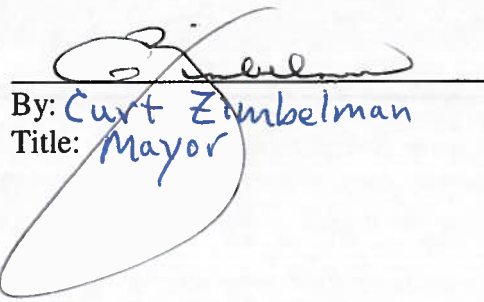 By: Curt Zimbelman
Title: Mayor